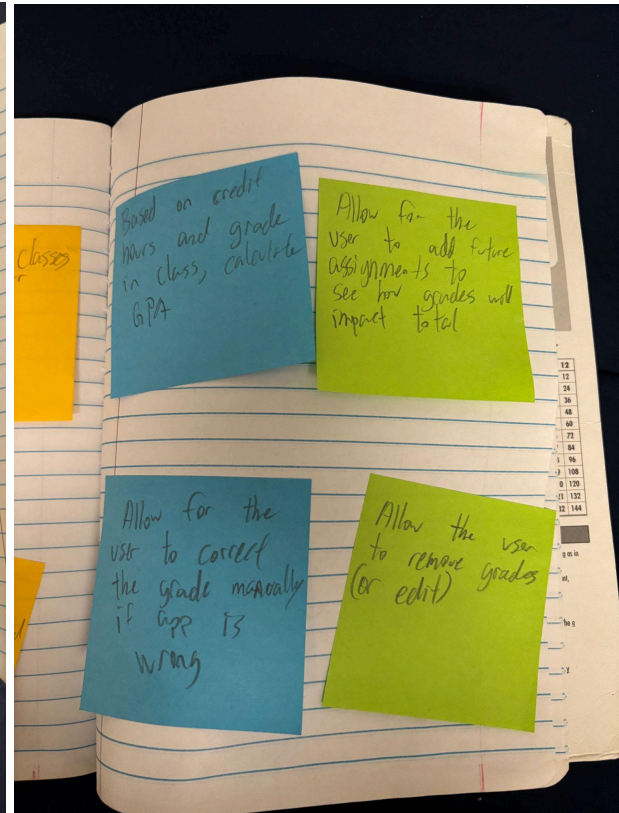 classes
Based on credit
hours and grade
in class, calculate
GPA
Allow for the
user to add future
assignments to
see how grades will
impact total
Allow for the
user to correct
the grade manually
if app is
wrong
Allow the user
to remove grades
(or edit)
12
12
24
36
48
60
72
84
96
108
120
132
144